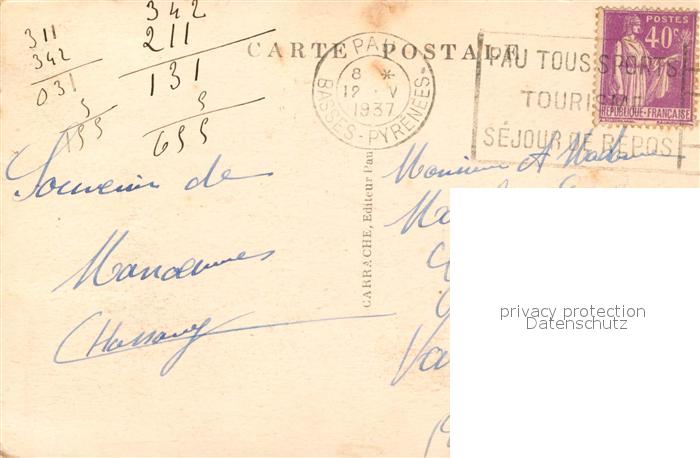 311
342
031
5
155
342
211
131
5
655
CARTE POSTALE
PAU
8 *
12 . V
1937
BASSES-PYRÉNÉES
PAU TOUS SPORTS
TOURISME
SÉJOUR DE REPOS
POSTES
40c
REPUBLIQUE-FRANÇAISE
Souvenir de
CARRACHE, Editeur Pau
Monsieur et Madame
privacy protection
Datenschutz